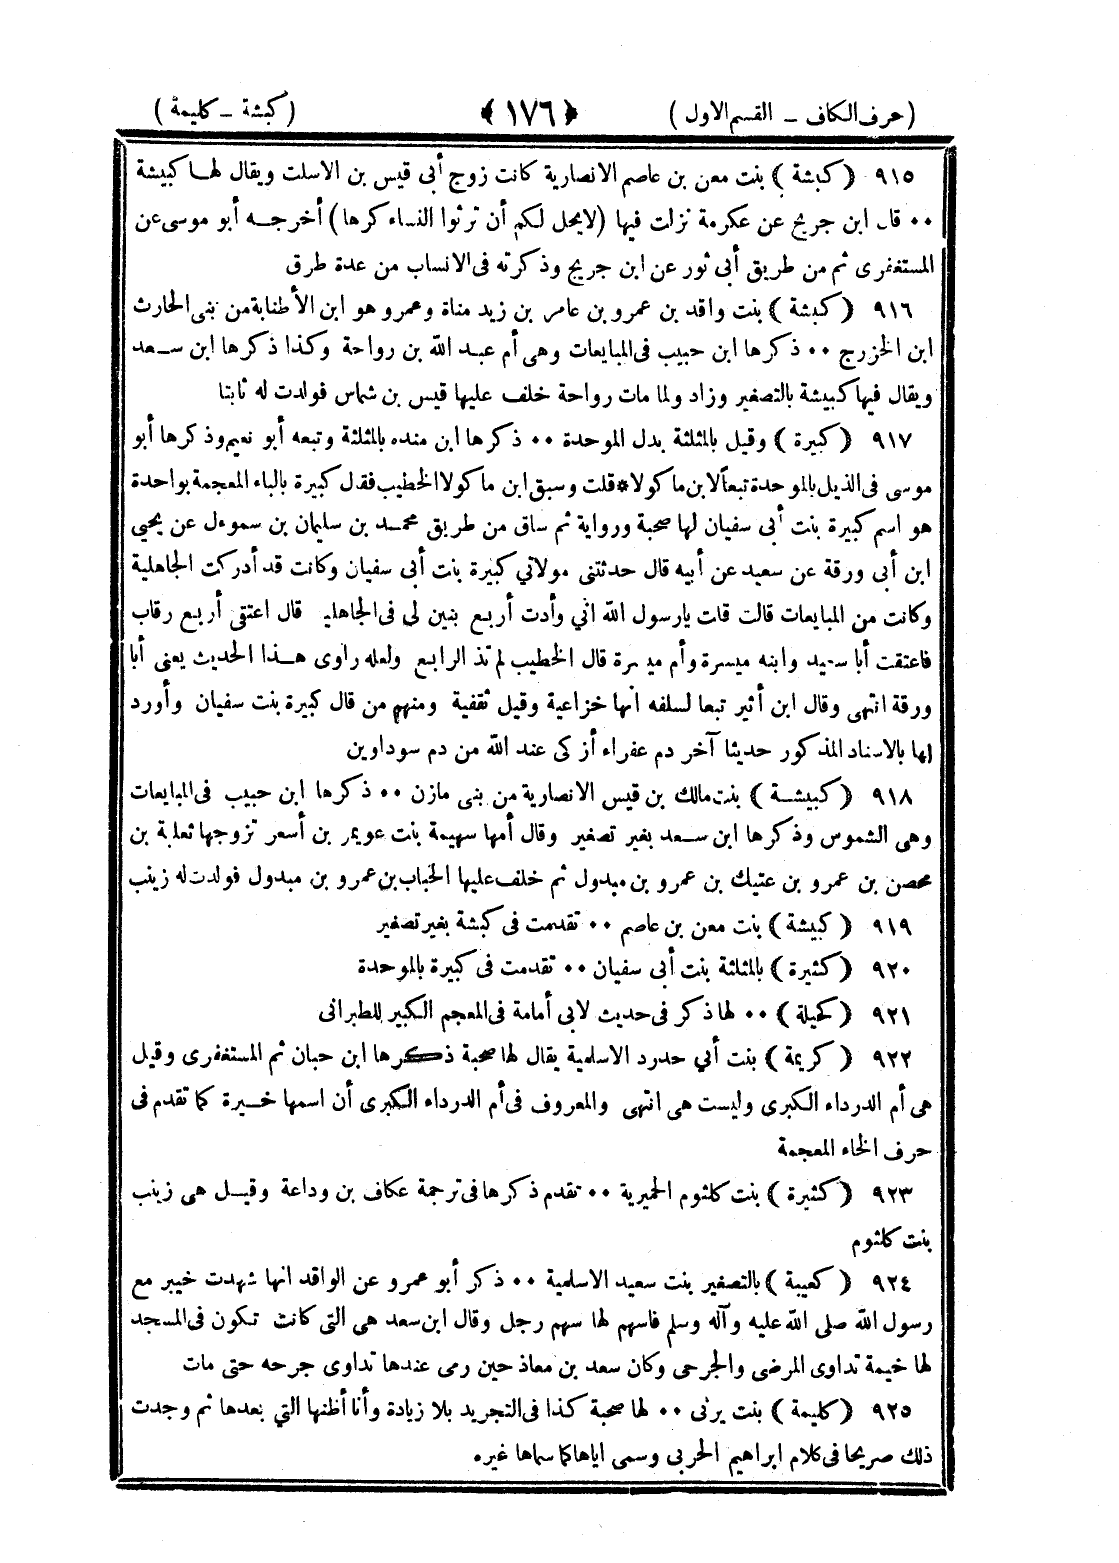 (حرف الكاف ــ القسم الاول)
﴿ ١٧٦ ﴾
(كبشة ــ كليمة)
٩١٥ (كبشة) بنت معن بن عاصم الانصارية كانت زوج أبي قيس بن الاسلت ويقال لها كبيشة
٠٠ قال ابن جريج عن عكرمة نزلت فيها (لايحل لكم أن ترثوا النساء كرها) أخرجه أبو موسى عن
المستغفرى ثم من طريق أبي ثور عن ابن جريج وذكرته فى الانساب من عدة طرق
٩١٦ (كبشة) بنت واقد بن عمرو بن عامر بن زيد مناة وعمرو هو ابن الأطنابة من بنى الحارث
ابن الخزرج ٠٠ ذكرها ابن حبيب فى المبايعات وهى أم عبد الله بن رواحة وكذا ذكرها ابن سعد
ويقال فيها كبيشة بالتصغير وزاد ولما مات رواحة خلف عليها قيس بن شماس فولدت له ثابتا
٩١٧ (كبيرة) وقيل بالمثلثة بدل الموحدة ٠٠ ذكرها ابن منده بالمثلثة وتبعه أبو نعيم وذكرها أبو
موسى فى الذيل بالموحدة تبعاً لابن ماكولا * قلت وسبق ابن ماكولا الخطيب فقال كبيرة بالباء المعجمة بواحدة
هو اسم كبيرة بنت أبى سفيان لها صحبة ورواية ثم ساق من طريق محمد بن سليمان بن سموءل عن يحيى
ابن أبى ورقة عن سعيد عن أبيه قال حدثتنى مولاتي كبيرة بنت أبى سفيان وكانت قد أدركت الجاهلية
وكانت من المبايعات قالت قلت يارسول الله اني وأدت أربع بنين لى فى الجاهلي قال اعتقى أربع رقاب
فاعتقت أبا سعيد وابنه ميسرة وأم ميسرة قال الخطيب لم تذ الرابع ولعله راوى هذا الحديث يعنى أبا
ورقة انتهى وقال ابن أثير تبعا لسلفه انها خزاعية وقيل ثقفية ومنهم من قال كبيرة بنت سفيان وأورد
لها بالاسناد المذكور حديثا آخر دم عفراء أزكى عند الله من دم سوداوين
٩١٨ (كبيشة) بنت مالك بن قيس الانصارية من بنى مازن ٠٠ ذكرها ابن حبيب فى المبايعات
وهى الشموس وذكرها ابن سعد بغير تصغير وقال أمها سهيمة بنت عويمر بن أسعر تزوجها ثعلبة بن
محصن بن عمرو بن عتيك بن عمرو بن مبدول ثم خلف عليها الحباب بن عمرو بن مبدول فولدت له زينب
٩١٩ (كبيشة) بنت معن بن عاصم ٠٠ تقدمت فى كبشة بغير تصغير
٩٢٠ (كثيرة) بالمثلثة بنت أبى سفيان ٠٠ تقدمت فى كبيرة بالموحدة
٩٢١ (كحيلة) ٠٠ لها ذكر فى حديث لابى أمامة فى المعجم الكبير للطبرانى
٩٢٢ (كريمة) بنت أبي حدرد الاسلمية يقال لها صحبة ذكرها ابن حبان ثم المستغفرى وقيل
هى أم الدرداء الكبرى وليست هى انتهى والمعروف فى أم الدرداء الكبرى أن اسمها خيرة كما تقدم فى
حرف الخاء المعجمة
٩٢٣ (كثيرة) بنت كلثوم الحميرية ٠٠ تقدم ذكرها فى ترجمة عكاف بن وداعة وقيل هى زينب
بنت كلثوم
٩٢٤ (كعيبة) بالتصغير بنت سعيد الاسلمية ٠٠ ذكر أبو عمرو عن الواقد انها شهدت خيبر مع
رسول الله صلى الله عليه وآله وسلم فاسهم لها سهم رجل وقال ابن سعد هى التى كانت تكون فى المسجد
لها خيمة تداوى المرضى والجرحى وكان سعد بن معاذ حين رمى عندها تداوى جرحه حتى مات
٩٢٥ (كليمة) بنت يرثى ٠٠ لها صحبة كذا فى التجريد بلا زيادة وأنا أظنها التي بعدها ثم وجدت
ذلك صريحا فى كلام ابراهيم الحربي وسمى اياها كما سماها غيره